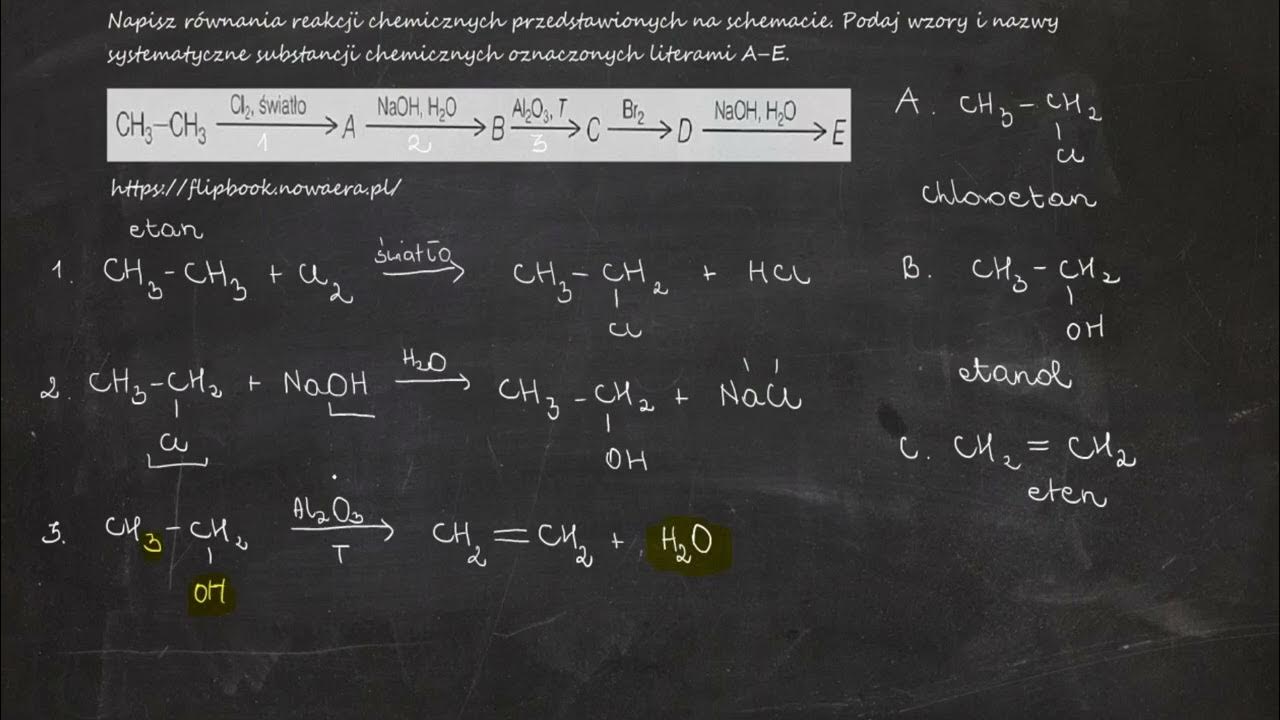 Napisz równania reakcji chemicznych przedstawionych na schemacie. Podaj wzory i nazwy
systematyczne substancji chemicznych oznaczonych literami A–E.
CH₃–CH₃ —Cl₂, światło→ A —NaOH, H₂O→ B —Al₂O₃, T→ C —Br₂→ D —NaOH, H₂O→ E
1 2 3
https://flipbook.nowaera.pl/
etan
1. CH₃–CH₃ + Cl₂ —światło→ CH₃–CH₂ + HCl
Cl
2. CH₃–CH₂ + NaOH —H₂O→ CH₃–CH₂ + NaCl
Cl OH
3. CH₃–CH₂ —Al₂O₃, T→ CH₂=CH₂ + H₂O
OH
A. CH₃–CH₂
Cl
chloroetan
B. CH₃–CH₂
OH
etanol
C. CH₂=CH₂
eten